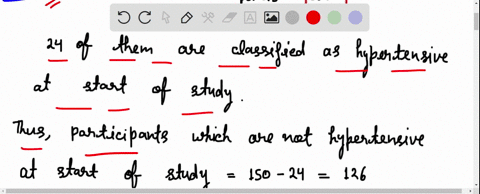 24 of them are classified as hypertensive
at start of study.
Thus, participants which are not hypertensive
at start of study = 150 - 24 = 126